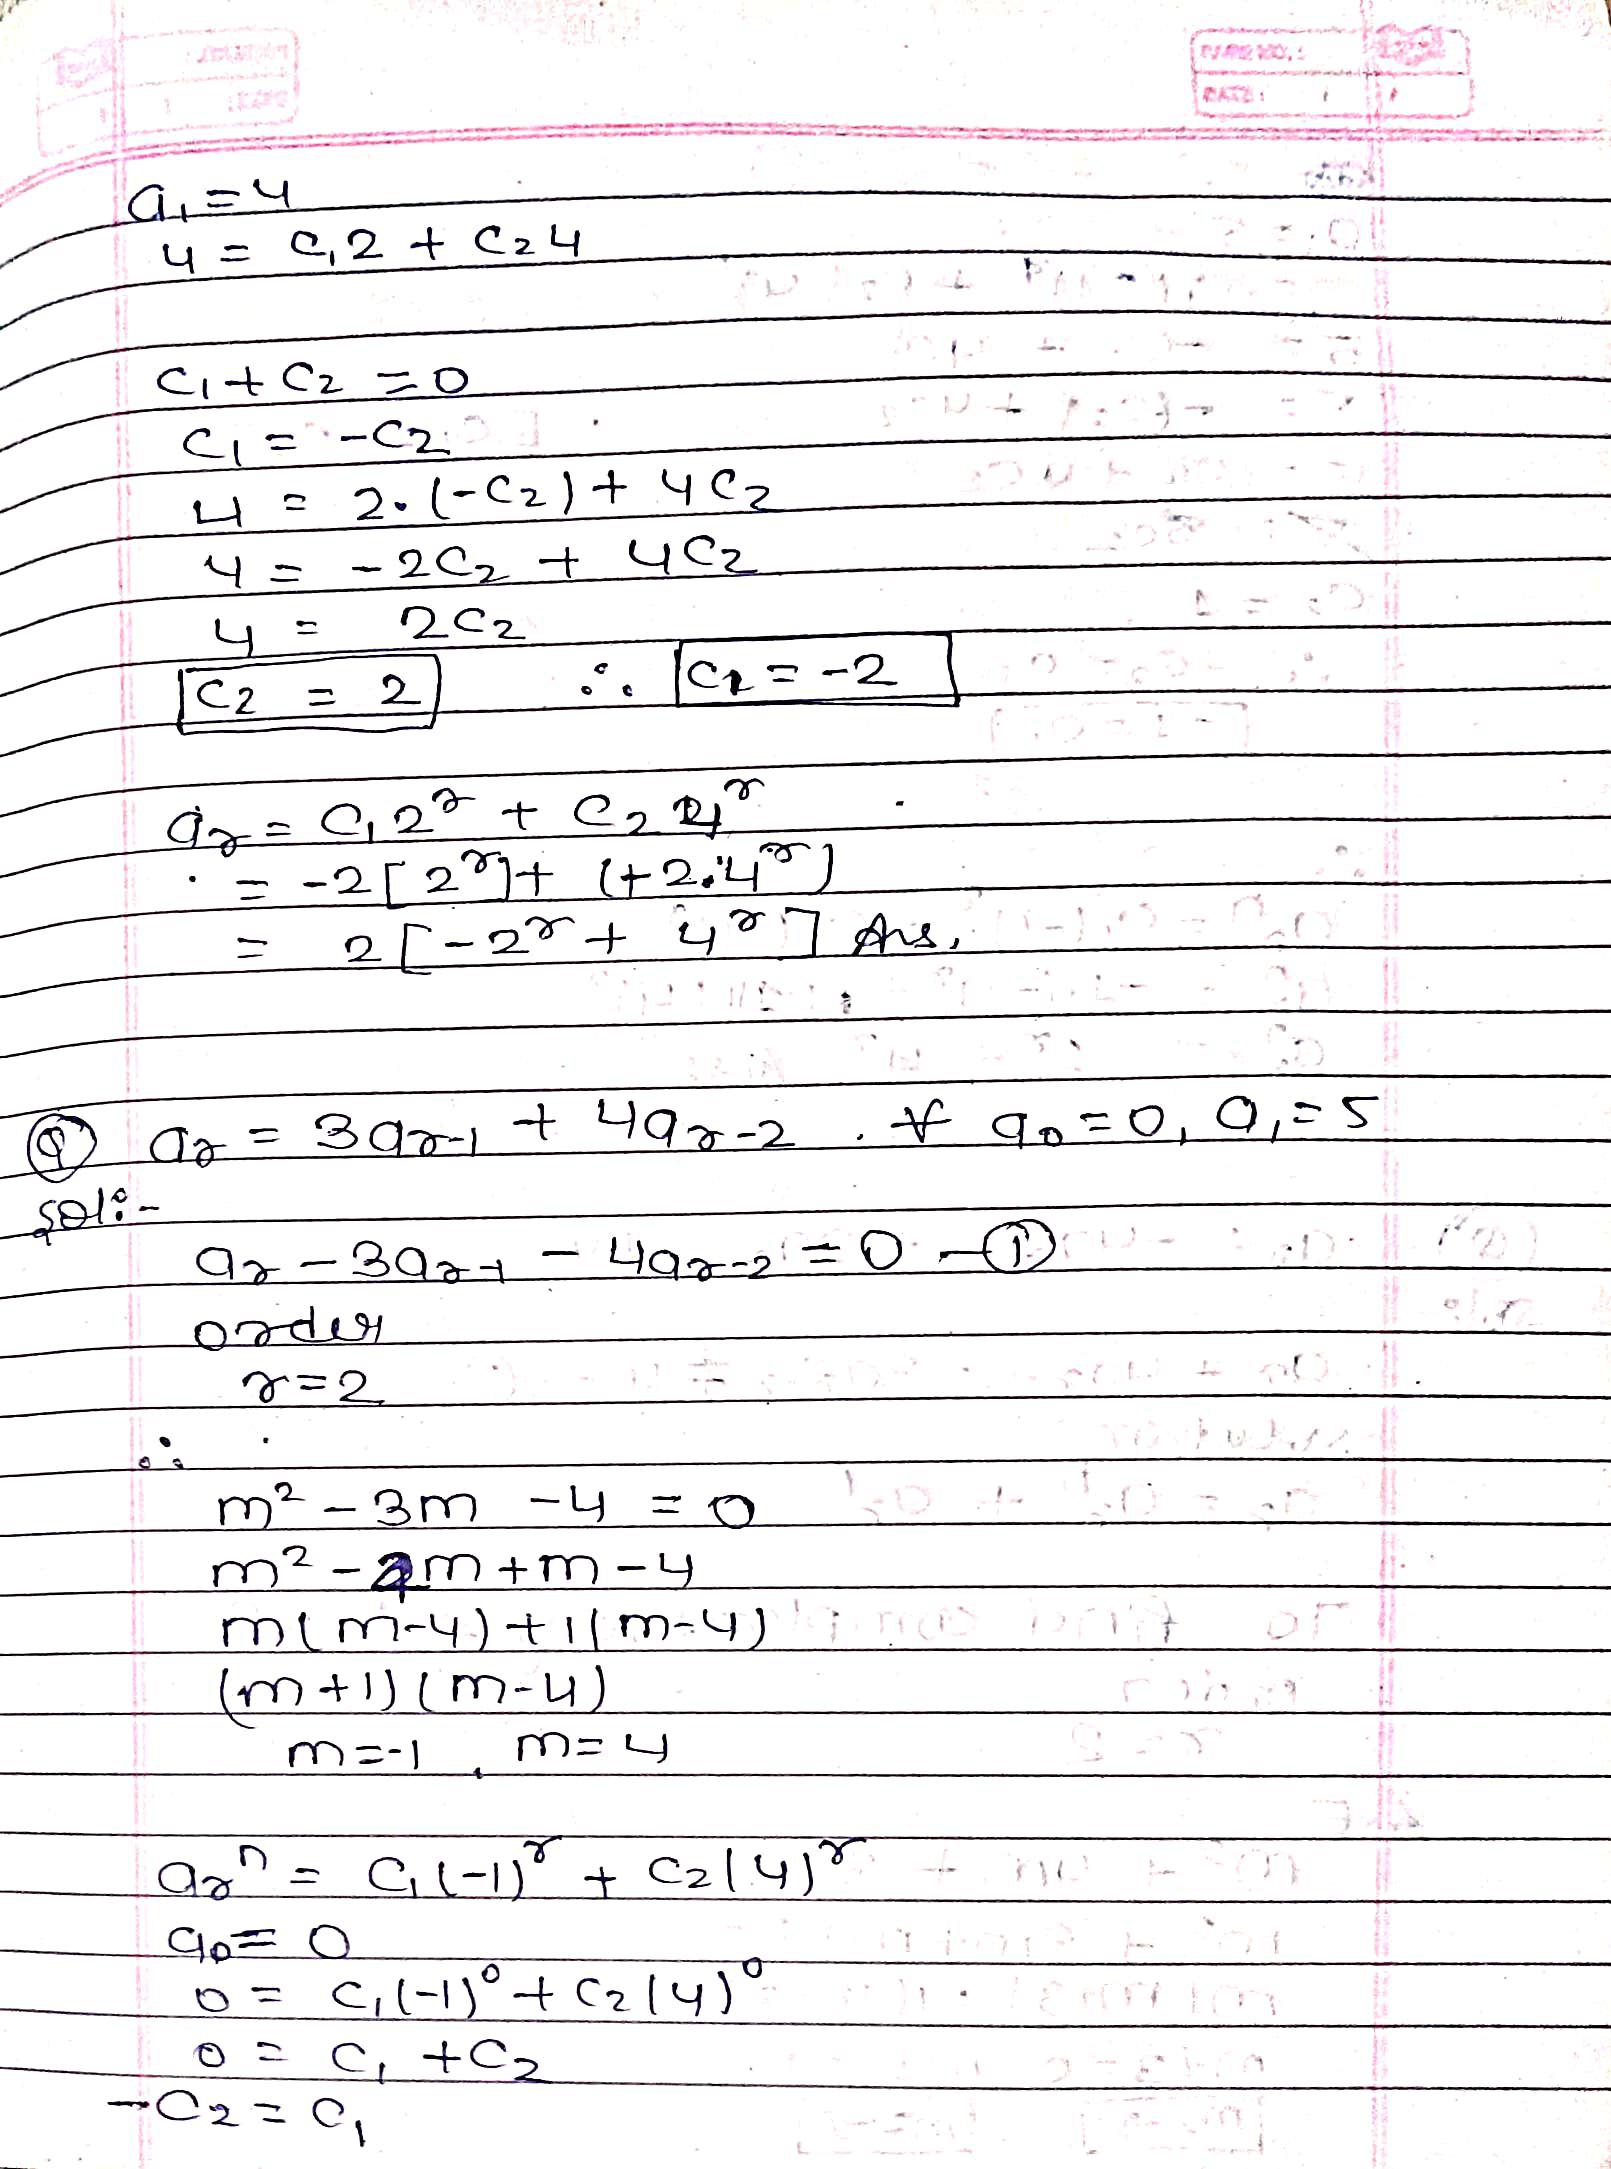 PAGE NO.:
DATE: / /
a₁ = 4
4 = C₁2 + C₂4
C₁ + C₂ = 0
C₁ = -C₂
4 = 2.(-C₂) + 4C₂
4 = -2C₂ + 4C₂
4 = 2C₂
C₂ = 2 ∴ C₁ = -2
aᵣ = C₁2ʳ + C₂4ʳ
= -2[2ʳ] + (+2.4ʳ)
= 2[-2ʳ + 4ʳ] Ans.
Q aᵣ = 3aᵣ₋₁ + 4aᵣ₋₂ . ∀ a₀ = 0, a₁ = 5
sol:-
aᵣ - 3aᵣ₋₁ - 4aᵣ₋₂ = 0 - ①
order
r = 2
∴
m² - 3m - 4 = 0
m² - 4m + m - 4
m(m-4) + 1(m-4)
(m+1)(m-4)
m = -1, m = 4
aᵣⁿ = C₁(-1)ʳ + C₂(4)ʳ
a₀ = 0
0 = C₁(-1)⁰ + C₂(4)⁰
0 = C₁ + C₂
-C₂ = C₁